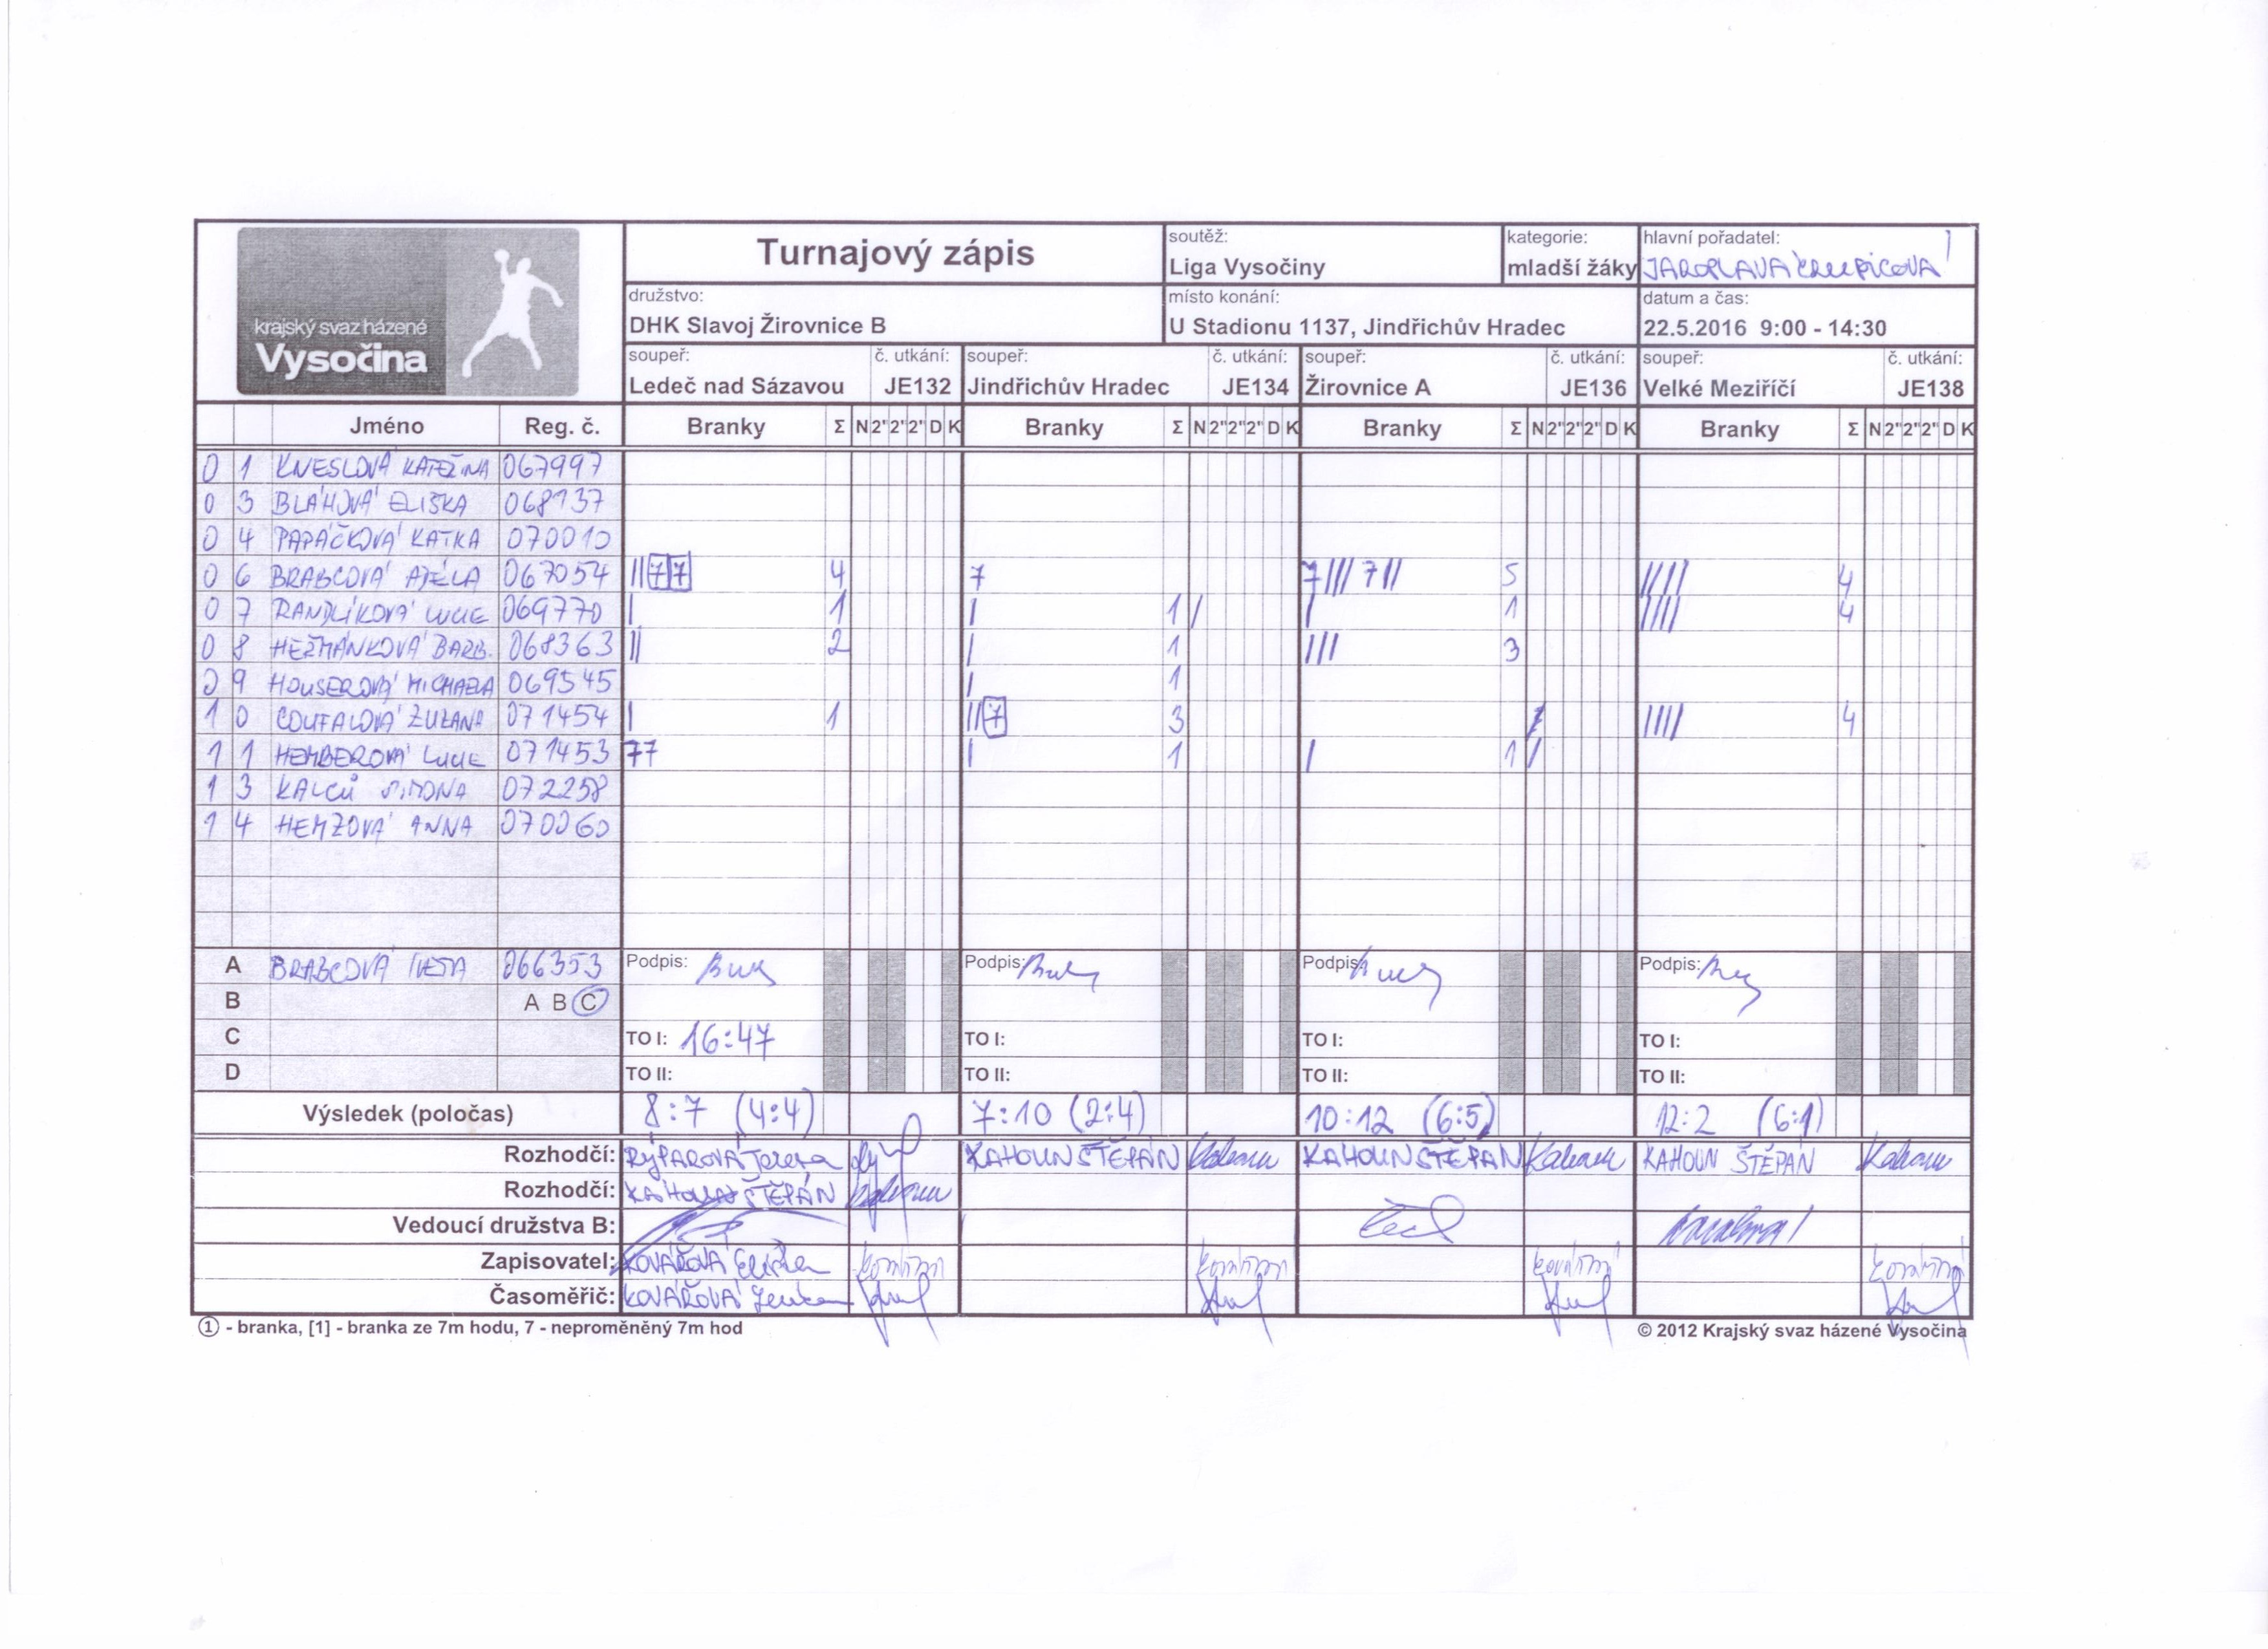 krajský svaz házené
Vysočina
Turnajový zápis
soutěž:
Liga Vysočiny
kategorie:
mladší žáky
hlavní pořadatel:
JAROSLAVA
družstvo:
DHK Slavoj Žirovnice B
místo konání:
U Stadionu 1137, Jindřichův Hradec
datum a čas:
22.5.2016 9:00 - 14:30
soupeř: č. utkání: soupeř: č. utkání: soupeř: č. utkání: soupeř: č. utkání:
Ledeč nad Sázavou JE132 Jindřichův Hradec JE134 Žirovnice A JE136 Velké Meziříčí JE138
Jméno Reg. č. Branky Σ N 2" 2" 2" D K Branky Σ N 2" 2" 2" D K Branky Σ N 2" 2" 2" D K Branky Σ N 2" 2" 2" D K
0 1 KNESLOVÁ KATEŽINA 067997
0 3 BLÁHOVÁ ELIŠKA 068137
0 4 PAPÁČKOVÁ KATKA 070010
0 6 BRABCOVÁ ADÉLA 067054 || 7 7 4 7 7 /// 7 // 5 //// 4
0 7 RANDLÍKOVÁ LUCIE 069770 | 1 | 1 / | 1 //// 4
0 8 HEŽMÁNKOVÁ BARB. 068363 || 2 | 1 /// 3
0 9 HOUSEROVÁ MICHAELA 069545 | 1
1 0 COUFALOVÁ ZUZANA 071454 | 1 || 7 3 //// 4
1 1 HEMBEROVÁ LUCIE 071453 77 | 1 | 1 /
1 3 KALCŮ SIMONA 072258
1 4 HEMZOVÁ ANNA 070060
A BRABCOVÁ IVETA 066353 Podpis: Podpis: Podpis: Podpis:
B A B C
C TO I: 16:47 TO I: TO I: TO I:
D TO II: TO II: TO II: TO II:
Výsledek (poločas) 8:7 (4:4) 7:10 (2:4) 10:12 (6:5) 12:2 (6:1)
Rozhodčí: RÝPAROVÁ Tereza KAHOUN ŠTĚPÁN Kahoun KAHOUN ŠTĚPÁN Kahoun KAHOUN ŠTĚPÁN Kahoun
Rozhodčí: KAHOUN ŠTĚPÁN Kahoun
Vedoucí družstva B:
Zapisovatel: KOVÁŘOVÁ Eliška
Časoměřič: KOVÁŘOVÁ Lenka
① - branka, [1] - branka ze 7m hodu, 7 - neproměněný 7m hod
© 2012 Krajský svaz házené Vysočina